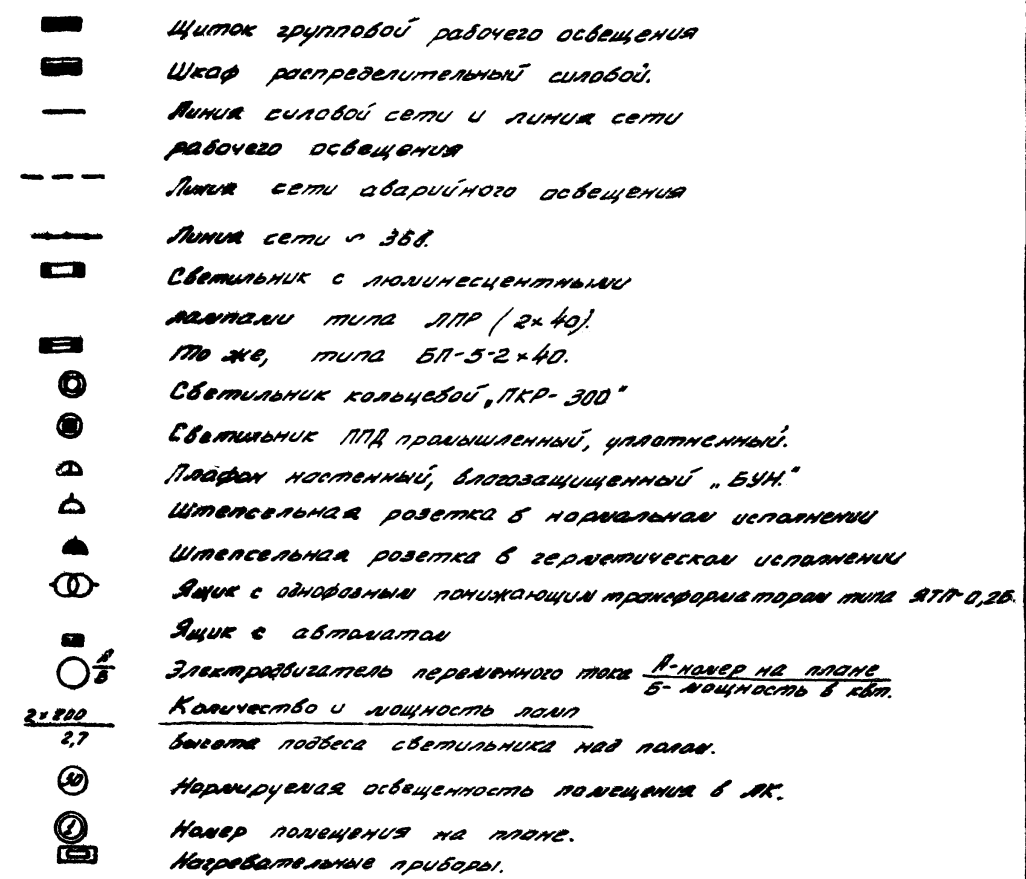 Щиток групповой рабочего освещения
Шкаф распределительный силовой.
Линия силовой сети и линия сети
рабочего освещения
Линия сети аварийного освещения
Линия сети ~ 36В.
Светильник с люминесцентными
лампами типа ЛПР (2×40).
То же, типа БЛ-5-2×40.
Светильник кольцевой „ПКР-300"
Светильник ППД промышленный, уплотненный.
Плафон настенный, влагозащищенный „БУН."
Штепсельная розетка в нормальном исполнении
Штепсельная розетка в герметическом исполнении
Ящик с однофазным понижающим трансформатором типа ЯТП-0,25.
Ящик с автоматом
А
Б
Электродвигатель переменного тока А-номер на плане
Б- мощность в квт.
Количество и мощность ламп
2,7
Высота подвеса светильника над полом.
Нормируемая освещенность помещения в ЛК.
1
Номер помещения на плане.
Нагревательные приборы.